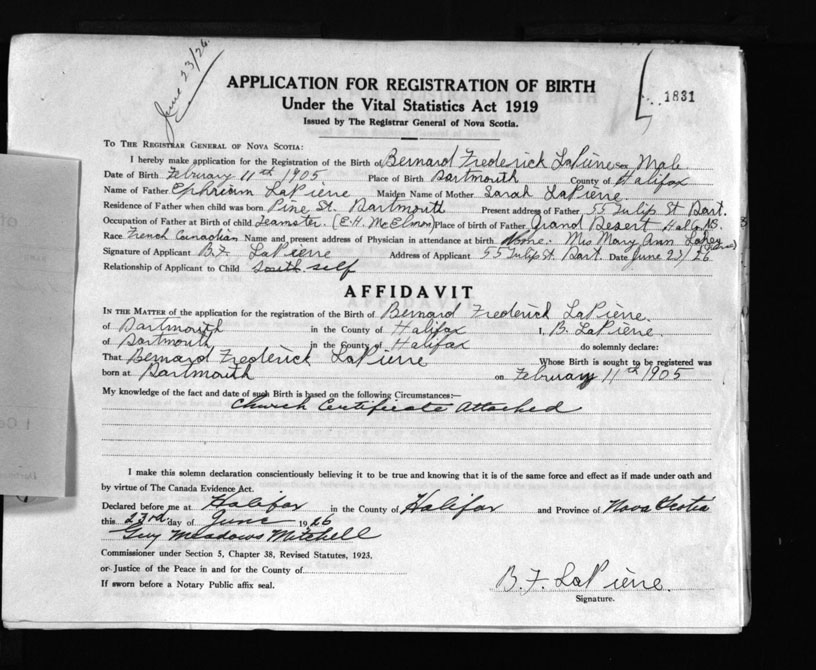 June 23/26
APPLICATION FOR REGISTRATION OF BIRTH
1831
Under the Vital Statistics Act 1919
Issued by The Registrar General of Nova Scotia.
To The Registrar General of Nova Scotia:
I hereby make application for the Registration of the Birth of Bernard Frederick LaPierre Sex Male
Date of Birth February 11th 1905 Place of Birth Dartmouth County of Halifax
Name of Father Ephriam LaPierre Maiden Name of Mother Sarah LaPierre
Residence of Father when child was born Pine St. Dartmouth Present address of Father 55 Tulip St Dart.
Occupation of Father at Birth of child Teamster. (E.H. McElmon) Place of birth of Father Grand Desert Halg NS.
Race French Canadian Name and present address of Physician in attendance at birth None. Mrs Mary Ann
Signature of Applicant B.F. LaPierre Address of Applicant 55 Tulip St. Dart. Date June 23/26
Relationship of Applicant to Child self
AFFIDAVIT
In the Matter of the application for the registration of the Birth of Bernard Frederick LaPierre.
of Dartmouth in the County of Halifax I, B. LaPierre.
of Dartmouth in the County of Halifax do solemnly declare:
That Bernard Frederick LaPierre Whose Birth is sought to be registered was
born at Dartmouth on February 11th 1905
My knowledge of the fact and date of such Birth is based on the following Circumstances:—
Church Certificate Attached
I make this solemn declaration conscientiously believing it to be true and knowing that it is of the same force and effect as if made under oath and
by virtue of The Canada Evidence Act.
Declared before me at Halifax in the County of Halifax and Province of Nova Scotia
this 23rd day of June 1926
Guy Meadows Mitchell
Commissioner under Section 5, Chapter 38, Revised Statutes, 1923,
or Justice of the Peace in and for the County of
If sworn before a Notary Public affix seal.
B. F. LaPierre.
Signature.